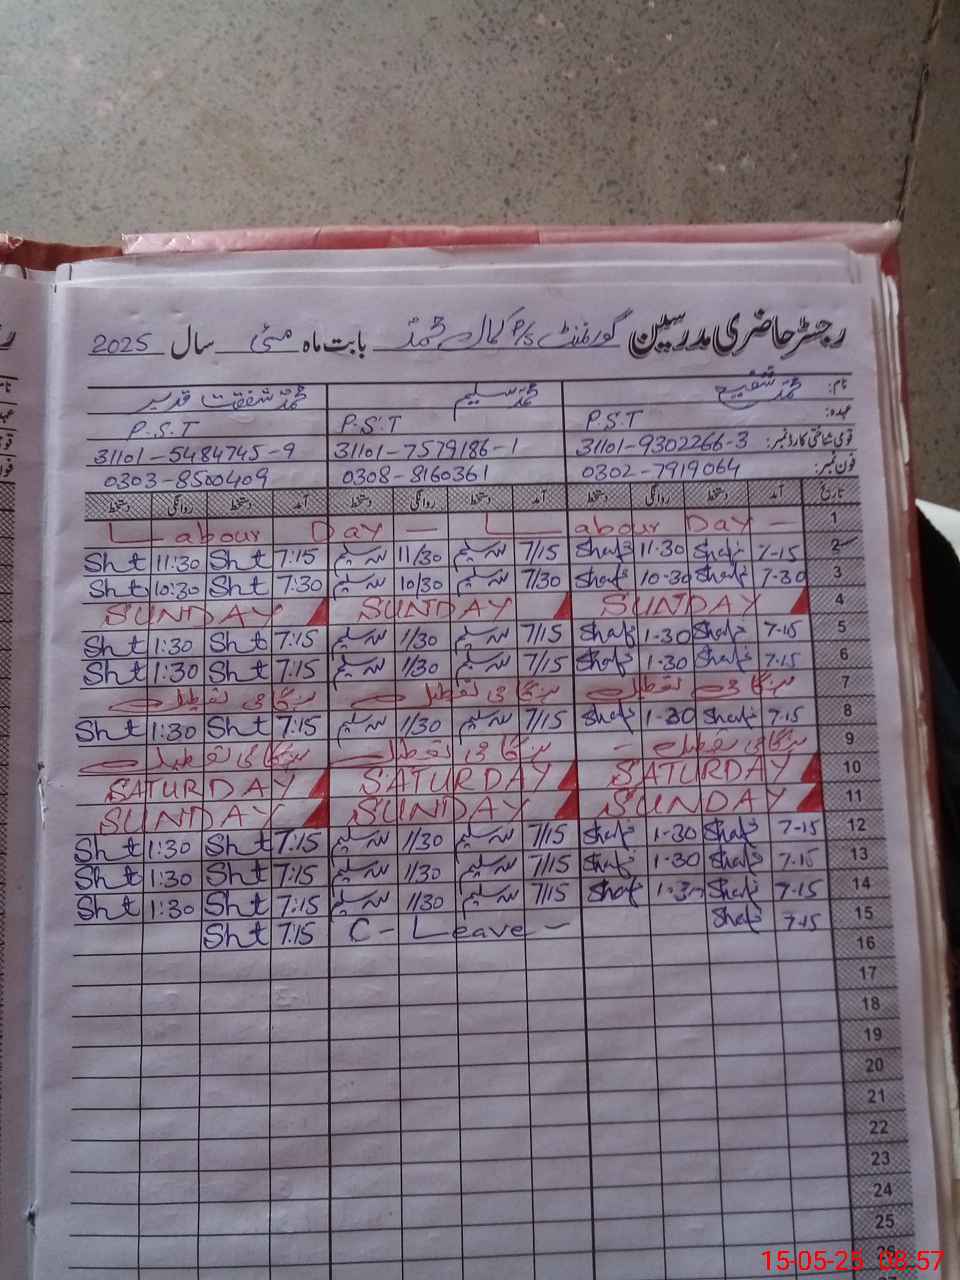 رجسٹر حاضری مدرسین گورنمنٹ P/S کمال محمد بابت ماہ مئی سال 2025
نام: محمد شفیع محمد سلیم محمد شفقت قدیر
عہدہ: P.S.T P.S.T P.S.T
قومی شناختی کارڈ نمبر: 31101-9302266-3 31101-7579186-1 31101-5484745-9
فون نمبر: 0302-7919064 0308-8160361 0303-8500409
تاریخ آمد دستخط روانگی دستخط آمد دستخط روانگی دستخط آمد دستخط روانگی دستخط
1 Labour Day - Labour Day -
2 7-15 Shafi 11-30 Shafi 7/15 سلیم 11/30 سلیم 7:15 Sht 11:30 Sht
3 7-30 Shafi 10-30 Shafi 7/30 سلیم 10/30 سلیم 7:30 Sht 10:30 Sht
4 SUNDAY SUNDAY SUNDAY
5 7-15 Shafi 1-30 Shafi 7/15 سلیم 1/30 سلیم 7:15 Sht 1:30 Sht
6 7-15 Shafi 1-30 Shafi 7/15 سلیم 1/30 سلیم 7:15 Sht 1:30 Sht
7 ہنگامی تعطیل ہنگامی تعطیل ہنگامی تعطیل
8 7-15 Shafi 1-30 Shafi 7/15 سلیم 1/30 سلیم 7:15 Sht 1:30 Sht
9 ہنگامی تعطیل - ہنگامی تعطیل ہنگامی تعطیل
10 SATURDAY SATURDAY SATURDAY
11 SUNDAY SUNDAY SUNDAY
12 7-15 Shafi 1-30 Shafi 7/15 سلیم 1/30 سلیم 7:15 Sht 1:30 Sht
13 7-15 Shafi 1-30 Shafi 7/15 سلیم 1/30 سلیم 7:15 Sht 1:30 Sht
14 7-15 Shafi 1-30 Shafi 7/15 سلیم 1/30 سلیم 7:15 Sht 1:30 Sht
15 7-15 Shafi C-Leave - 7:15 Sht
16
17
18
19
20
21
22
23
24
25
26
15-05-25 08:57